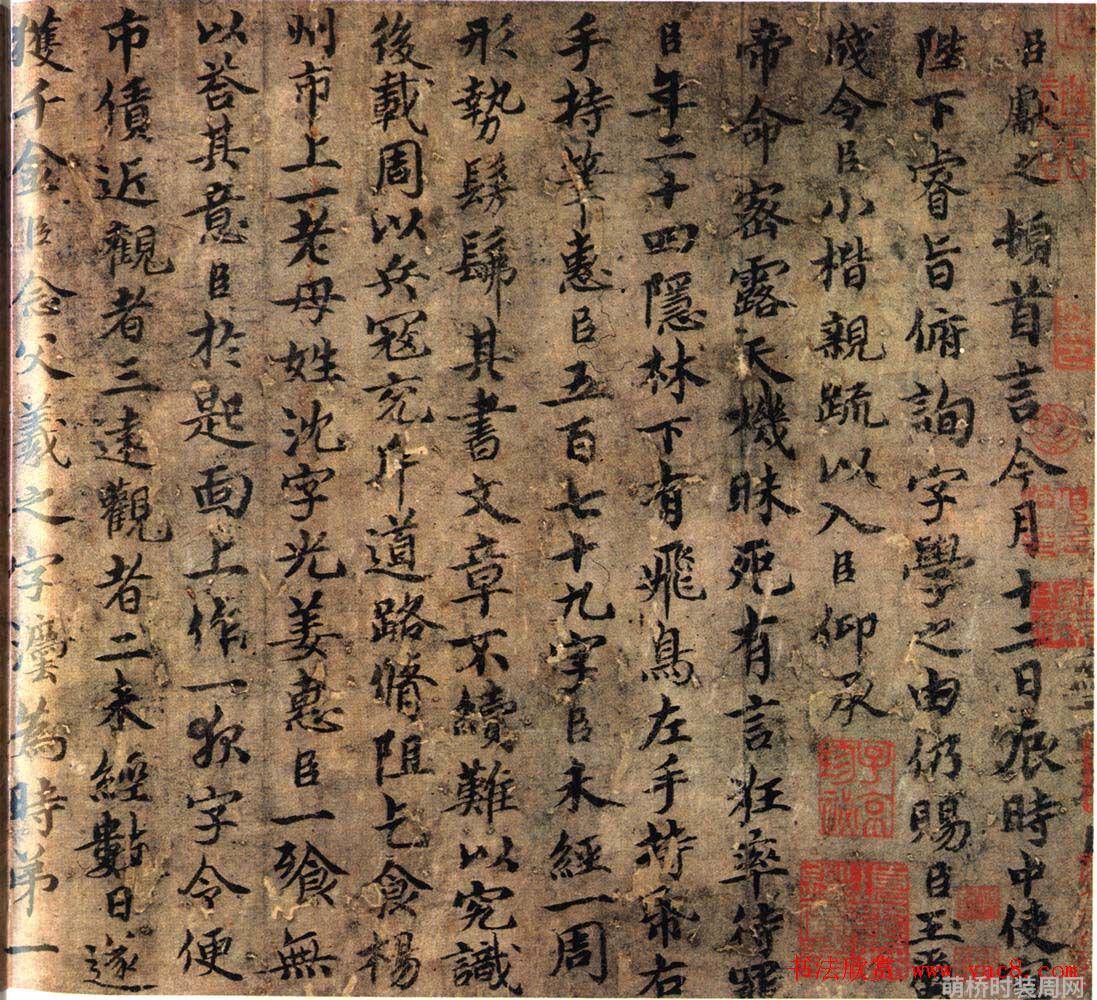 臣獻之頓首言今月十三日辰時中使
陛下睿旨俯詢字學之由仍賜臣玉
成令臣小楷親疏以入臣仰承
帝命密露天機昧死有言狂率待罪
臣年二十四隱林下有飛鳥左手持帋右
手持筆惠臣五百七十九字臣未經一周
形勢髣髴其書文章不續難以究識
後載周以兵寇充斥道路脩阻乞食楊
州市上一老母姓沈字光姜惠臣一飡無
以荅其意臣於匙面上作一夜字令便
市債近觀者三遠觀者二未經數日遂
獲千金臣念父羲之字法為時第一
书法欣赏 www.yac8.com
萌桥时装周网